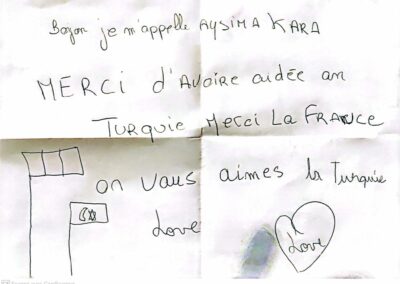 Bojon je m'appelle AYSIMA KARA
MERCI d'AVOIRE aidée an
TURQUIE MERCI LA FRANCE
on vous aimes la Turquie
Love
Love